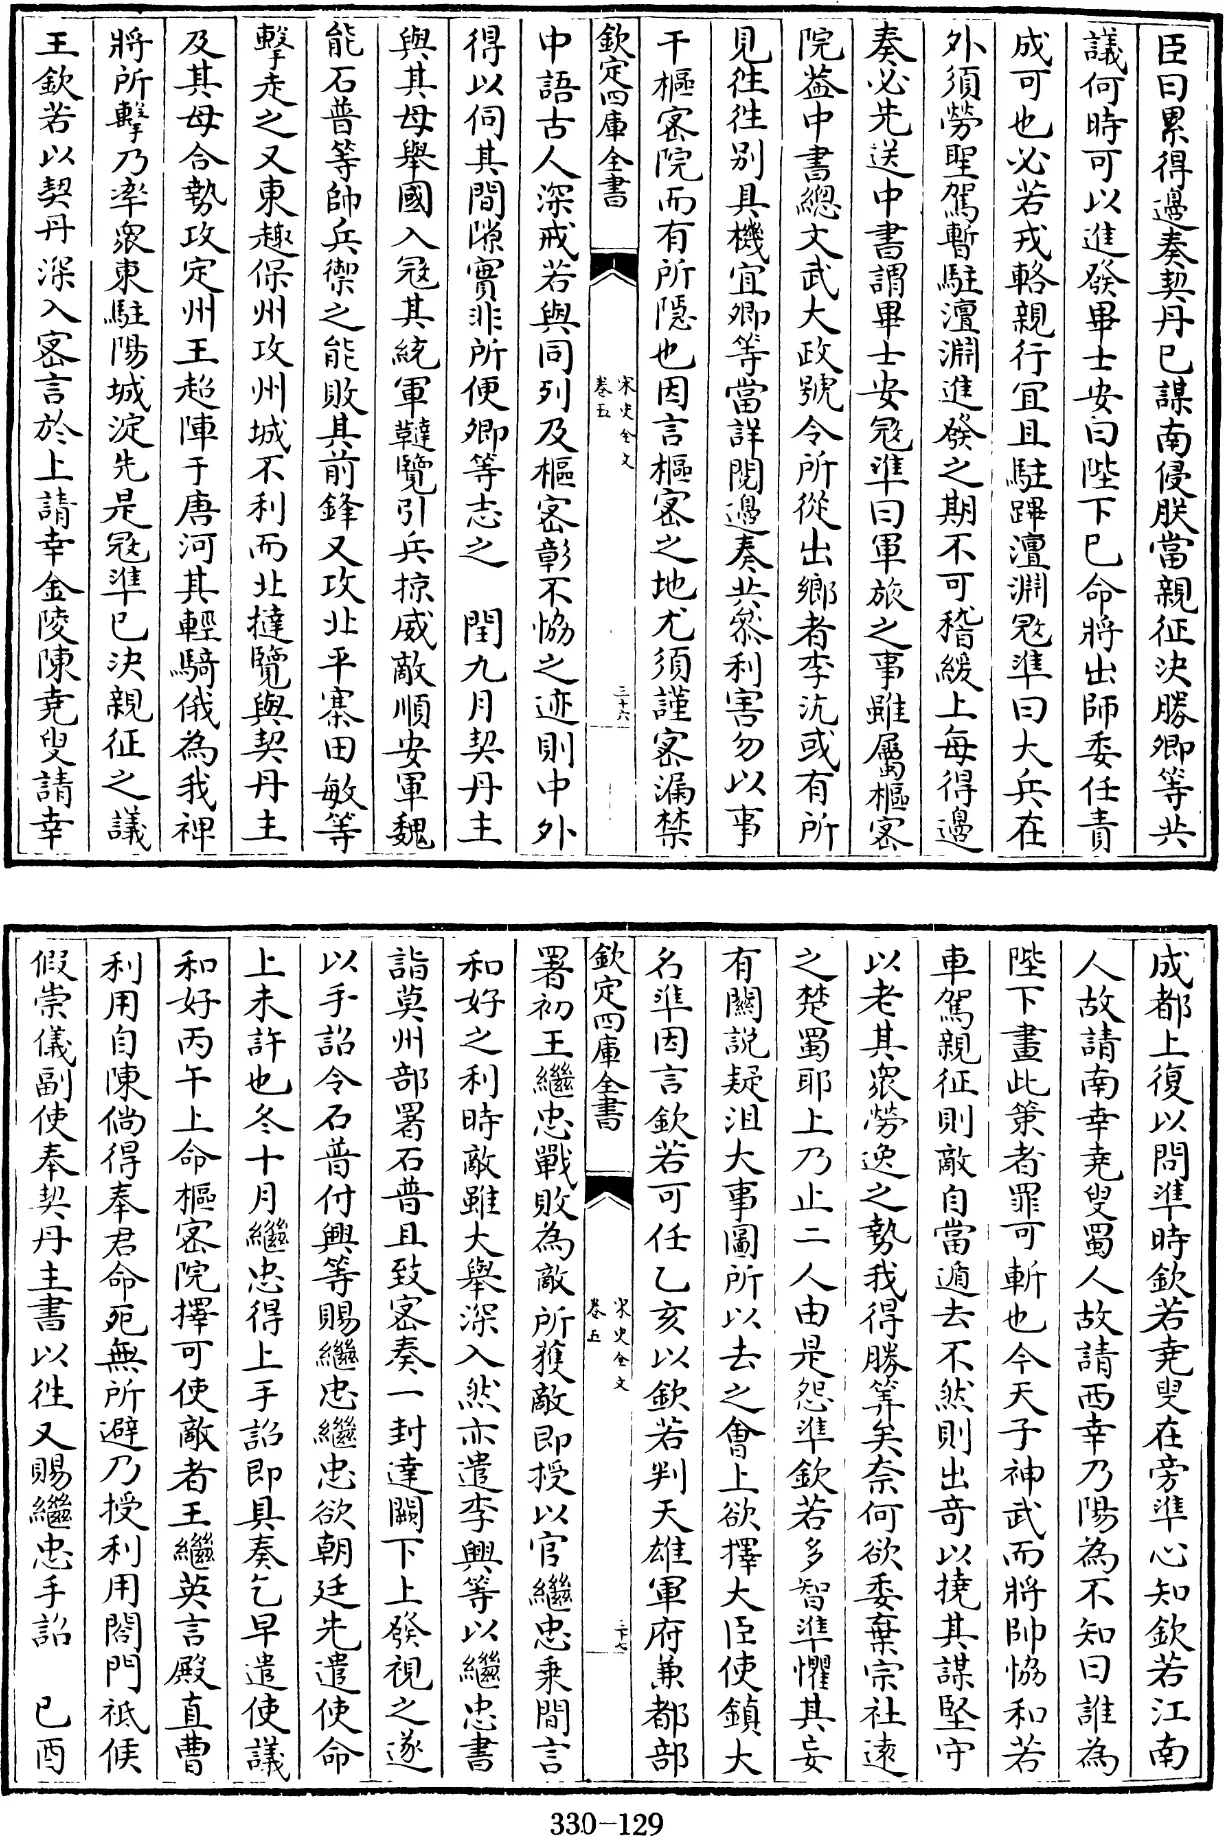 臣曰累得邉奏契丹已謀南侵朕當親征決勝卿等共
議何時可以進發畢士安曰陛下已命將出師委任責
成可也必若戎輅親行宜且駐蹕澶淵冦準曰大兵在
外須勞聖駕暫駐澶淵進發之期不可稽緩上每得邉
奏必先送中書謂畢士安冦準曰軍旅之事雖屬樞宻
院葢中書總文武大政號令所從出鄉者李沆或有所
見徃徃别具機宜卿等當詳閱邉奏共叅利害勿以事
干樞宻院而有所隱也因言樞宻之地尤須謹宻漏禁
欽定四庫全書
宋史全文
卷五
三十六
中語古人深戒若與同列及樞宻彰不恊之迹則中外
得以伺其間隙實非所便卿等志之　閏九月契丹主
與其母舉國入冦其統軍韃覽引兵掠威敵順安軍魏
能石普等帥兵禦之能敗其前鋒又攻北平寨田敏等
擊走之又東趣保州攻州城不利而北撻覽與契丹主
及其母合勢攻定州王超陣于唐河其輕騎俄為我裨
將所擊乃率衆東駐陽城淀先是冦準已決親征之議
王欽若以契丹深入宻言於上請幸金陵陳堯叟請幸
成都上復以問準時欽若堯叟在旁準心知欽若江南
人故請南幸堯叟蜀人故請西幸乃陽為不知曰誰為
陛下畫此策者罪可斬也今天子神武而將帥恊和若
車駕親征則敵自當遁去不然則出奇以撓其謀堅守
以老其衆勞逸之勢我得勝筭矣奈何欲委棄宗社逺
之楚蜀耶上乃止二人由是怨準欽若多智準懼其妄
有關説疑沮大事圖所以去之會上欲擇大臣使鎮大
名準因言欽若可任乙亥以欽若判天雄軍府兼都部
欽定四庫全書
宋史全文
卷五
三十七
署初王繼忠戰敗為敵所獲敵即授以官繼忠乘間言
和好之利時敵雖大舉深入然亦遣李興等以繼忠書
詣莫州部署石普且致宻奏一封達闕下上發視之遂
以手詔令石普付興等賜繼忠繼忠欲朝廷先遣使命
上未許也冬十月繼忠得上手詔即具奏乞早遣使議
和好丙午上命樞宻院擇可使敵者王繼英言殿直曹
利用自陳倘得奉君命死無所避乃授利用閤門祗候
假崇儀副使奉契丹主書以徃又賜繼忠手詔　已酉
330-129